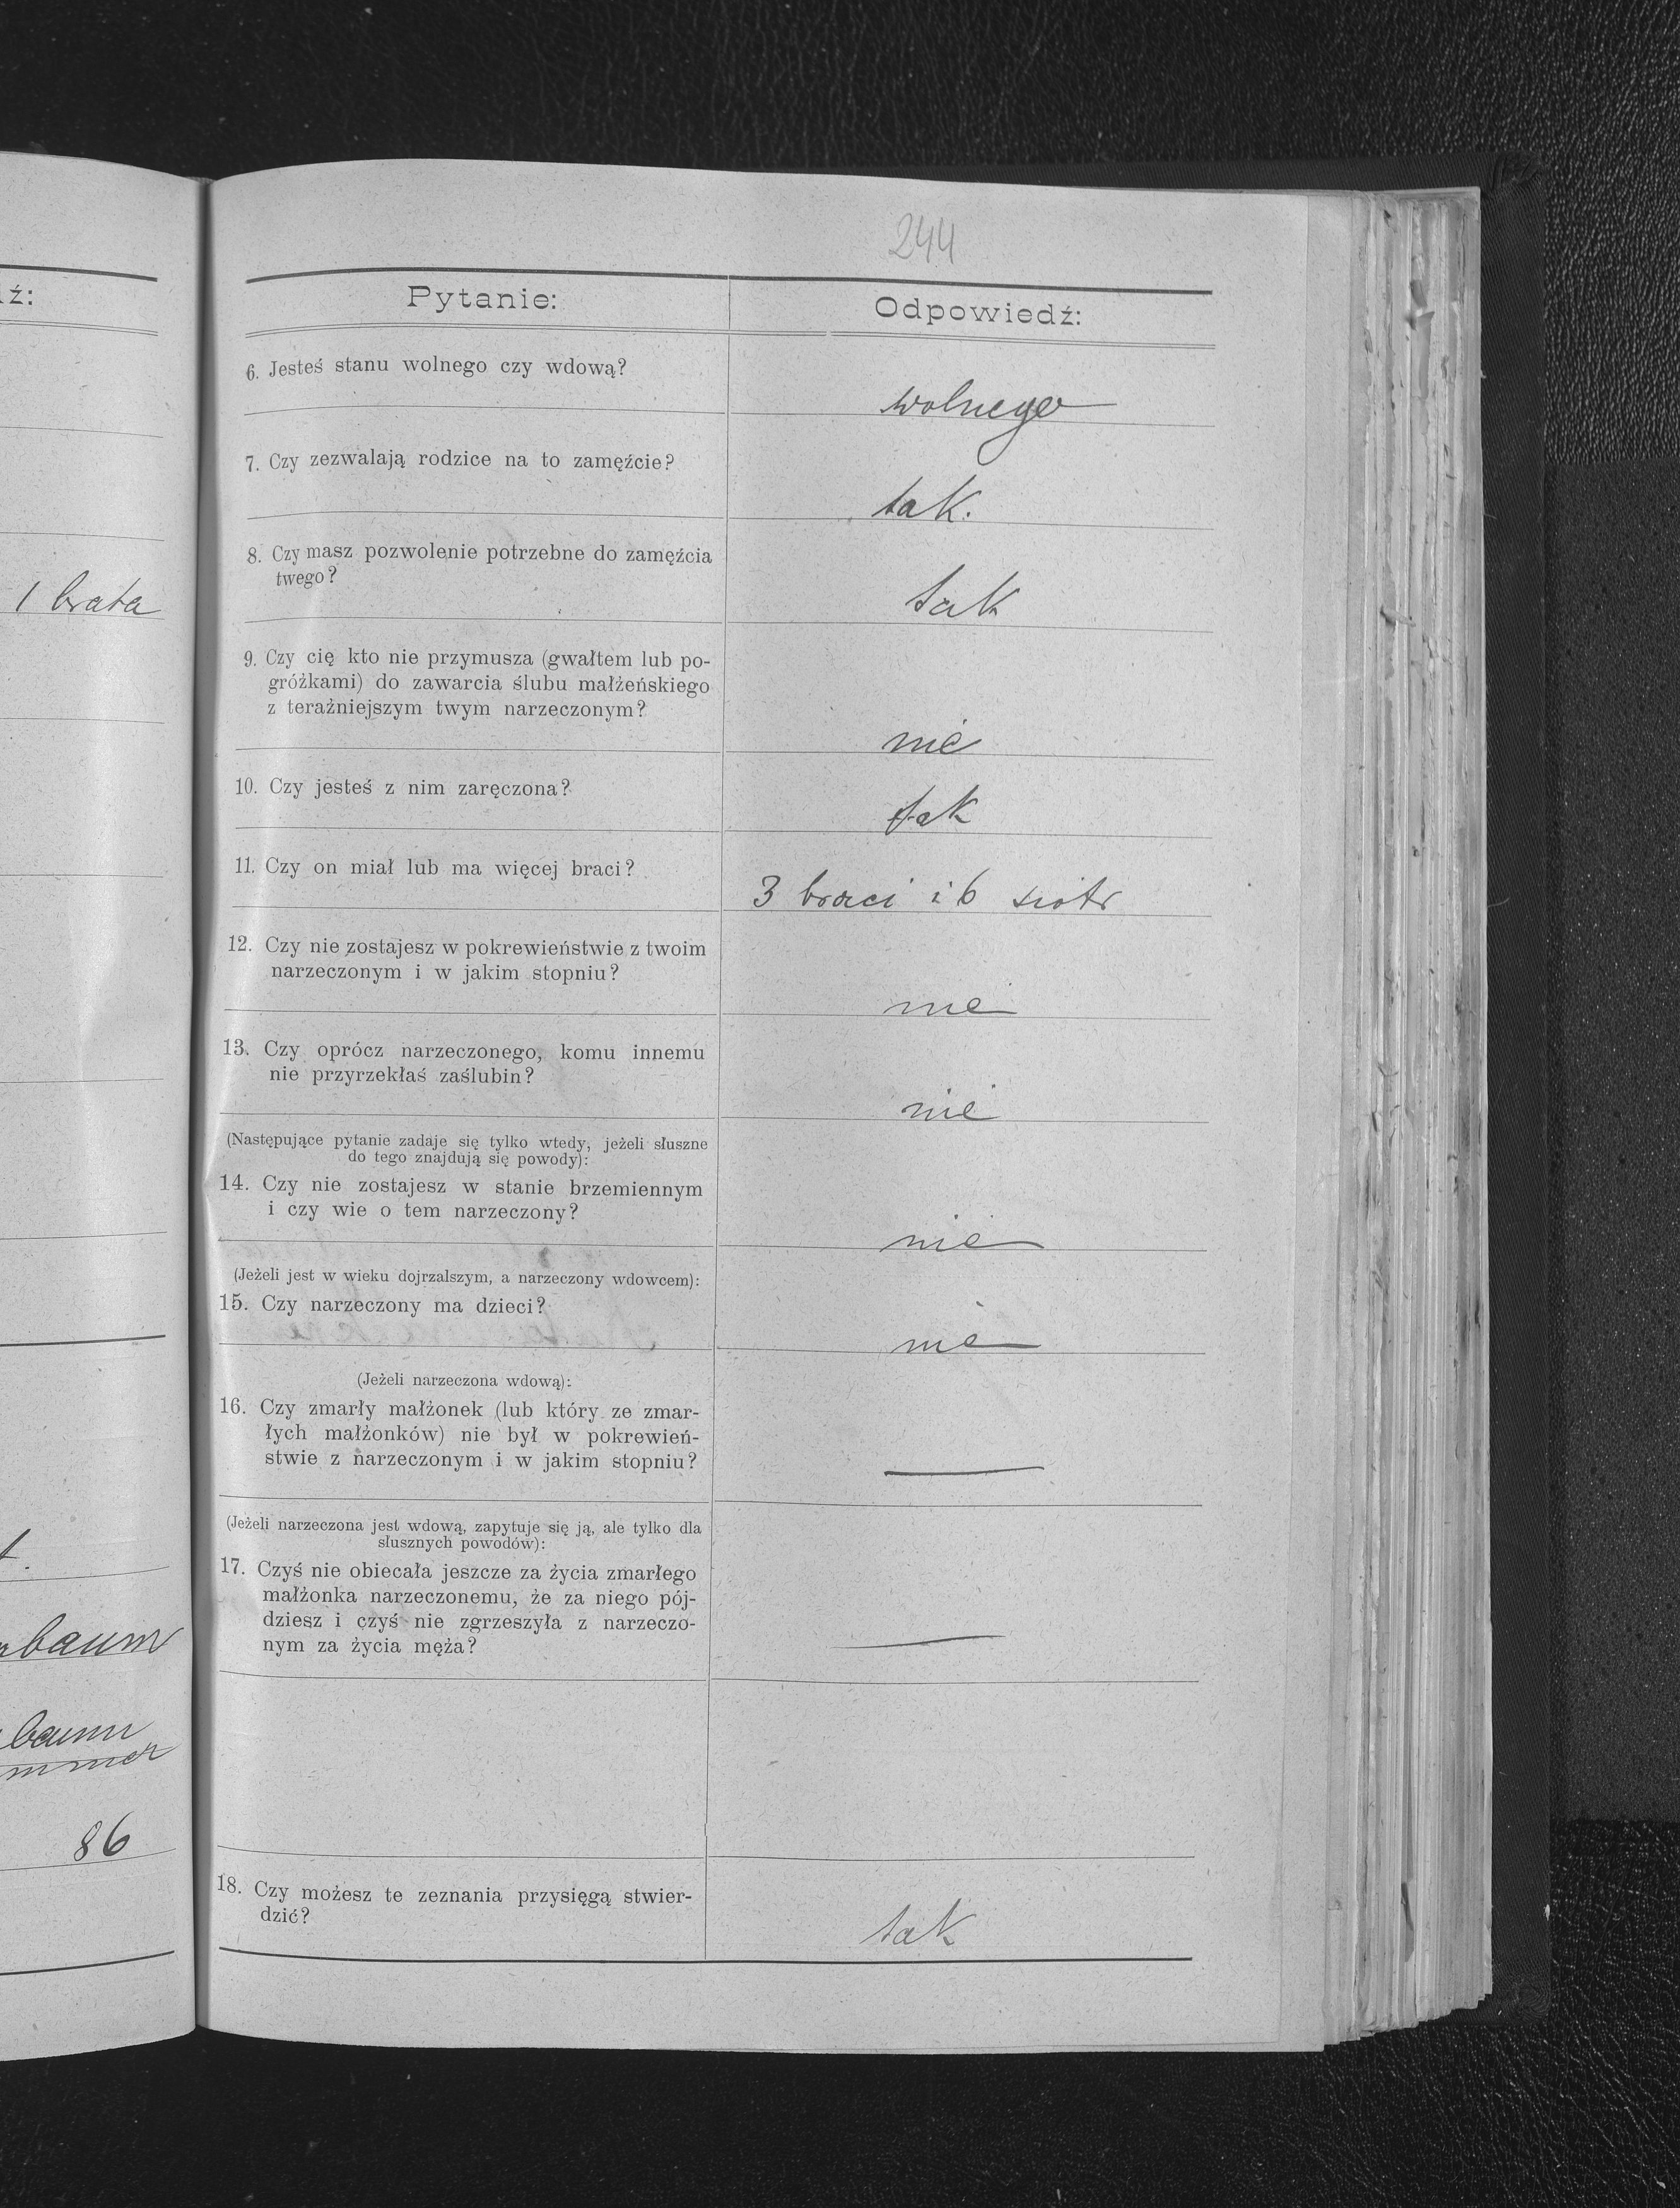 dź:
1 brata
t.
baum
baum
mmer
86
244
Pytanie:
Odpowiedź:
6. Jesteś stanu wolnego czy wdową?
wolnego
7. Czy zezwalają rodzice na to zamęźcie?
tak.
8. Czy masz pozwolenie potrzebne do zamęźcia
twego?
tak
9. Czy cię kto nie przymusza (gwałtem lub po-
gróżkami) do zawarcia ślubu małżeńskiego
z teraźniejszym twym narzeczonym?
nie
10. Czy jesteś z nim zaręczona?
tak
11. Czy on miał lub ma więcej braci?
3 braci i 6 siotr
12. Czy nie zostajesz w pokrewieństwie z twoim
narzeczonym i w jakim stopniu?
nie
13. Czy oprócz narzeczonego, komu innemu
nie przyrzekłaś zaślubin?
nie
(Następujące pytanie zadaje się tylko wtedy, jeżeli słuszne
do tego znajdują się powody):
14. Czy nie zostajesz w stanie brzemiennym
i czy wie o tem narzeczony?
nie
(Jeżeli jest w wieku dojrzalszym, a narzeczony wdowcem):
15. Czy narzeczony ma dzieci?
nie
(Jeżeli narzeczona wdową):
16. Czy zmarły małżonek (lub który ze zmar-
łych małżonków) nie był w pokrewień-
stwie z narzeczonym i w jakim stopniu?
(Jeżeli narzeczona jest wdową, zapytuje się ją, ale tylko dla
słusznych powodów):
17. Czyś nie obiecała jeszcze za życia zmarłego
małżonka narzeczonemu, że za niego pój-
dziesz i czyś nie zgrzeszyła z narzeczo-
nym za życia męża?
18. Czy możesz te zeznania przysięgą stwier-
dzić?
tak